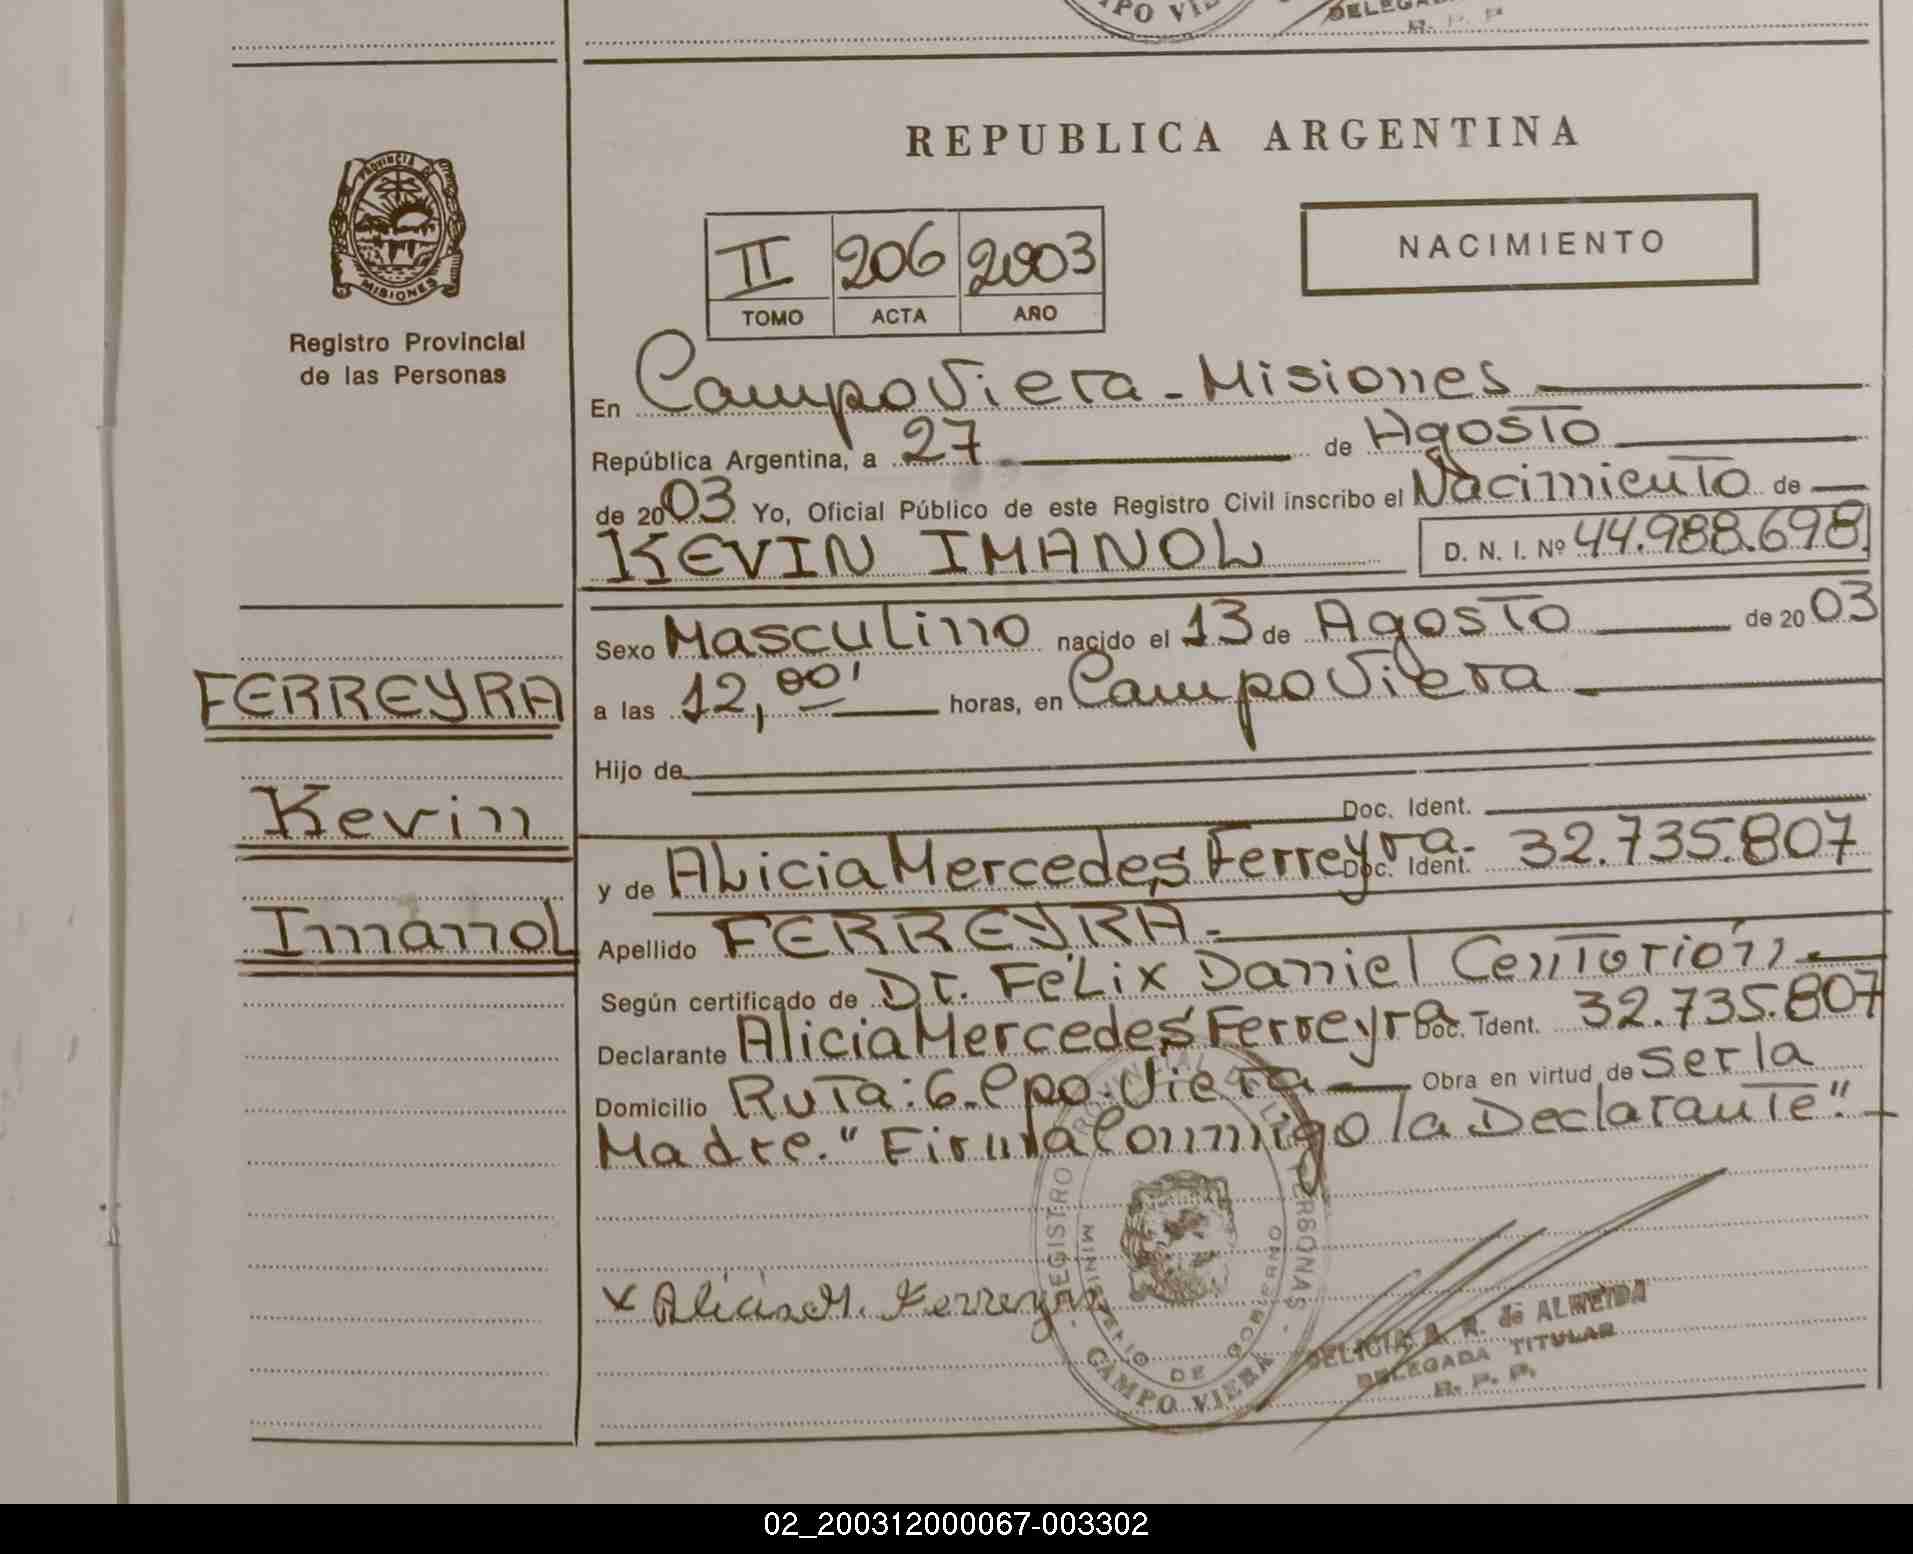 CAMPO VIE
DELEGA
R. P. P.
REPUBLICA ARGENTINA
PROVINCIA DE
MISIONES
II 206 2003
TOMO ACTA AÑO
NACIMIENTO
Registro Provincial
de las Personas
En Campo Viera - Misiones
República Argentina, a 27 de Agosto
de 2003 Yo, Oficial Público de este Registro Civil inscribo el Nacimiento de
KEVIN IMANOL D. N. I. Nº 44.988.698
Sexo Masculino nacido el 13 de Agosto de 2003
FERREYRA
a las 12,00' horas, en Campo Viera
Hijo de
Doc. Ident.
Kevin
y de Alicia Mercedes Ferreyra. Doc. Ident. 32.735.807
Imanol
Apellido FERREYRA.-
Según certificado de Dr. Félix Daniel Centorión
Declarante Alicia Mercedes Ferreyra Doc. Ident. 32.735.807
Domicilio Ruta: 6. Cpo. Viera Obra en virtud de ser la
Madre. "Firma Conmigo la Declarante".
x Alicia M. Ferreyra
REGISTRO PROVINCIAL DE LAS PERSONAS - CAMPO VIERA -
MINISTERIO DE GOBIERNO
DELICIA A. R. de ALMEIDA
DELEGADA TITULAR
R. P. P.
02_200312000067-003302